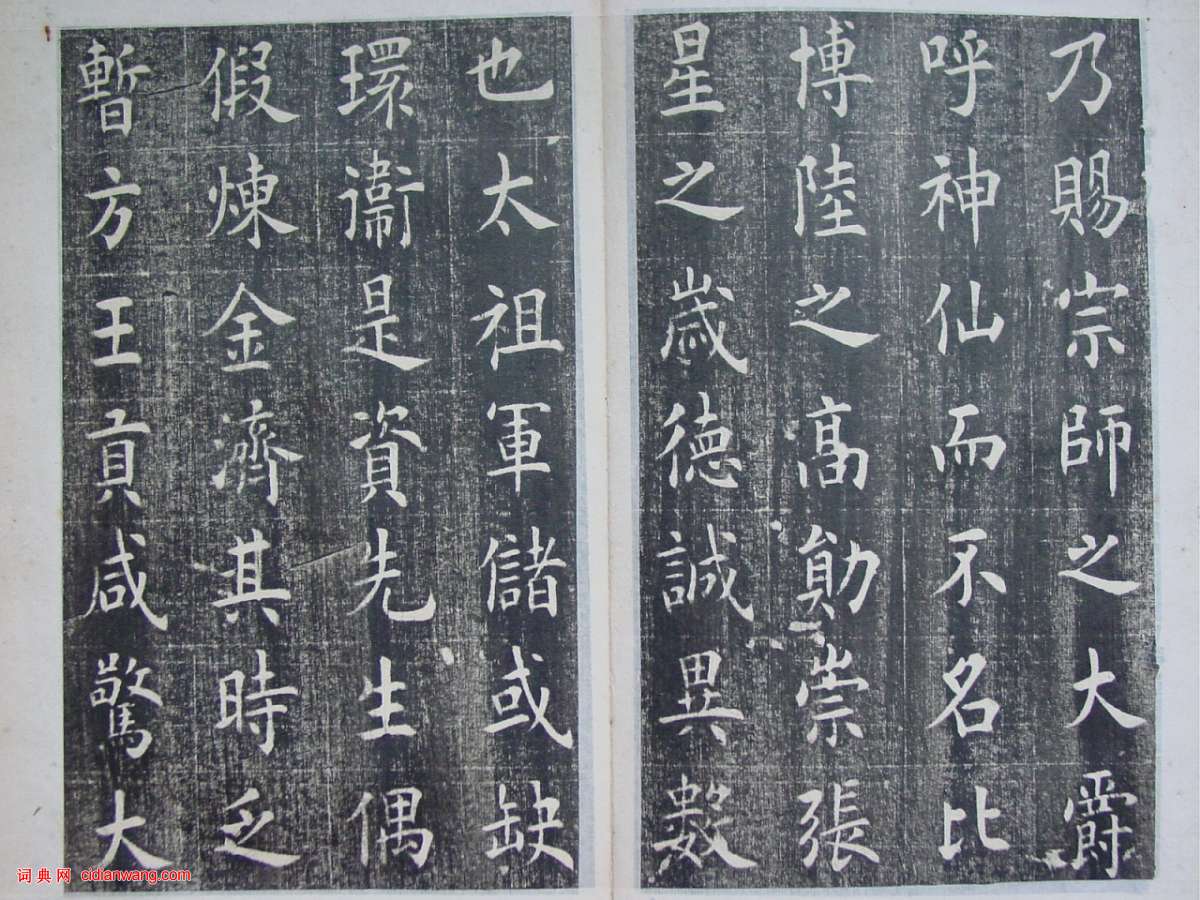 乃賜宗師之大爵
呼神仙而不名比
博陸之高勛崇張
星之歲德誠異數
也太祖軍儲或缺
環衞是資先生偶
假煉金濟其時乏
暫方王貢咸驚大
词典网 cidianwang.com